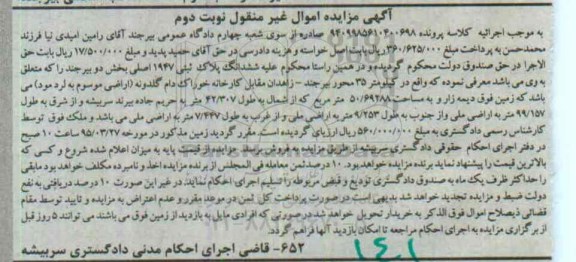 آگهی مزایده اموال غیر منقول نوبت دوم
به موجب اجرائیه کلاسه پرونده ۹۴۰۹۹۸۵۶۱۰۴۰۰۶۹۸ صادره از سوی شعبه چهارم دادگاه عمومی بیرجند آقای رامین امیدی نیا فرزند
محمدحسن به پرداخت مبلغ ۳۶۰/۶۲۵/۰۰۰ ریال بابت اصل خواسته و هزینه دادرسی در حق آقای حمید پدید و مبلغ ۱۷/۵۰۰/۰۰۰ ریال بابت حق
الاجرا در حق صندوق دولت محکوم گردیده و در همین راستا محکوم علیه ششدانگ پلاک ثبتی ۱۹۴۷ اصلی بخش دو بیرجند را که متعلق
به وی می باشد معرفی نموده که واقع در کیلومتر ۳۵ محور بیرجند - زاهدان مقابل کارخانه خوراک دام گلدونه (اراضی موسوم به لرد مود) می
باشد که زمین فوق دیمه زار و به مساحت ۵۰/۶۹۲۸۸ متر مربع که از شمال به طول ۴۲/۳۰۷ متر به حریم جاده بیرند سربیشه و از شرق به طول
۹۹/۱۵۷ متر به اراضی ملی و از جنوب به طول ۹/۲۵۳ متر به اراضی ملی و از غرب به طول ۷/۴۴۷ متر به اراضی ملی می باشد و ملک فوق توسط
کارشناس رسمی دادگستری به مبلغ ۵۶۰/۰۰۰/۰۰۰ ریال ارزیابی گردیده است. مقرر گردید زمین مذکور در مورخه ۹۵/۰۳/۲۷ ساعت ۱۰ صبح
در دفتر اجرای احکام حقوقی دادگستری سربیشه از طریق مزایده به فروش برسد. مزایده از قیمت پایه به میزان اعلام شده شروع و کسی که
بالاترین قیمت را پیشنهاد نماید برنده مزایده خواهد بود. ۱۰ درصد ثمن معامله فی المجلس از برنده مزایده اخذ و نامبرده مکلف خواهد بود مابقی
را حداکثر ظرف یک ماه به صندوق دادگستری تودیع و قبض مربوطه را تسلیم اجرای احکام نماید. در غیر این صورت ۱۰ درصد دریافتی به نفع
دولت ضبط و مزایده تجدید خواهد شد بدیهی است در صورت پرداخت کل ثمن در موعد مقرر و عدم اعتراض به مزایده و تایید توسط مقام
قضائی ذیصلاح اموال فوق الذکر به خریدار تحویل خواهد شد در صورتی که افرادی مایل به بازدید از زمین فوق می باشند می توانند ۵ روز قبل
از برگزاری مزایده به اجرای احکام مراجعه تا امکان بازدید آنها فراهم گردد.
۶۵۲- قاضی اجرای احکام مدنی دادگستری سربیشه
۱۴۱